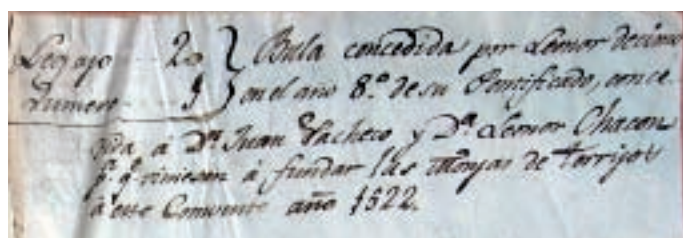 Legajo 20 } Bula concedida por Leon decimo
Numero 9 } en el año 8.º de su Pontificado, conce
dida á Dⁿ Juan Pacheco y Dª Leonor Chacon
pª q.e viniesen á fundar las Monjas de Torrijos
á este Convento año 1522.